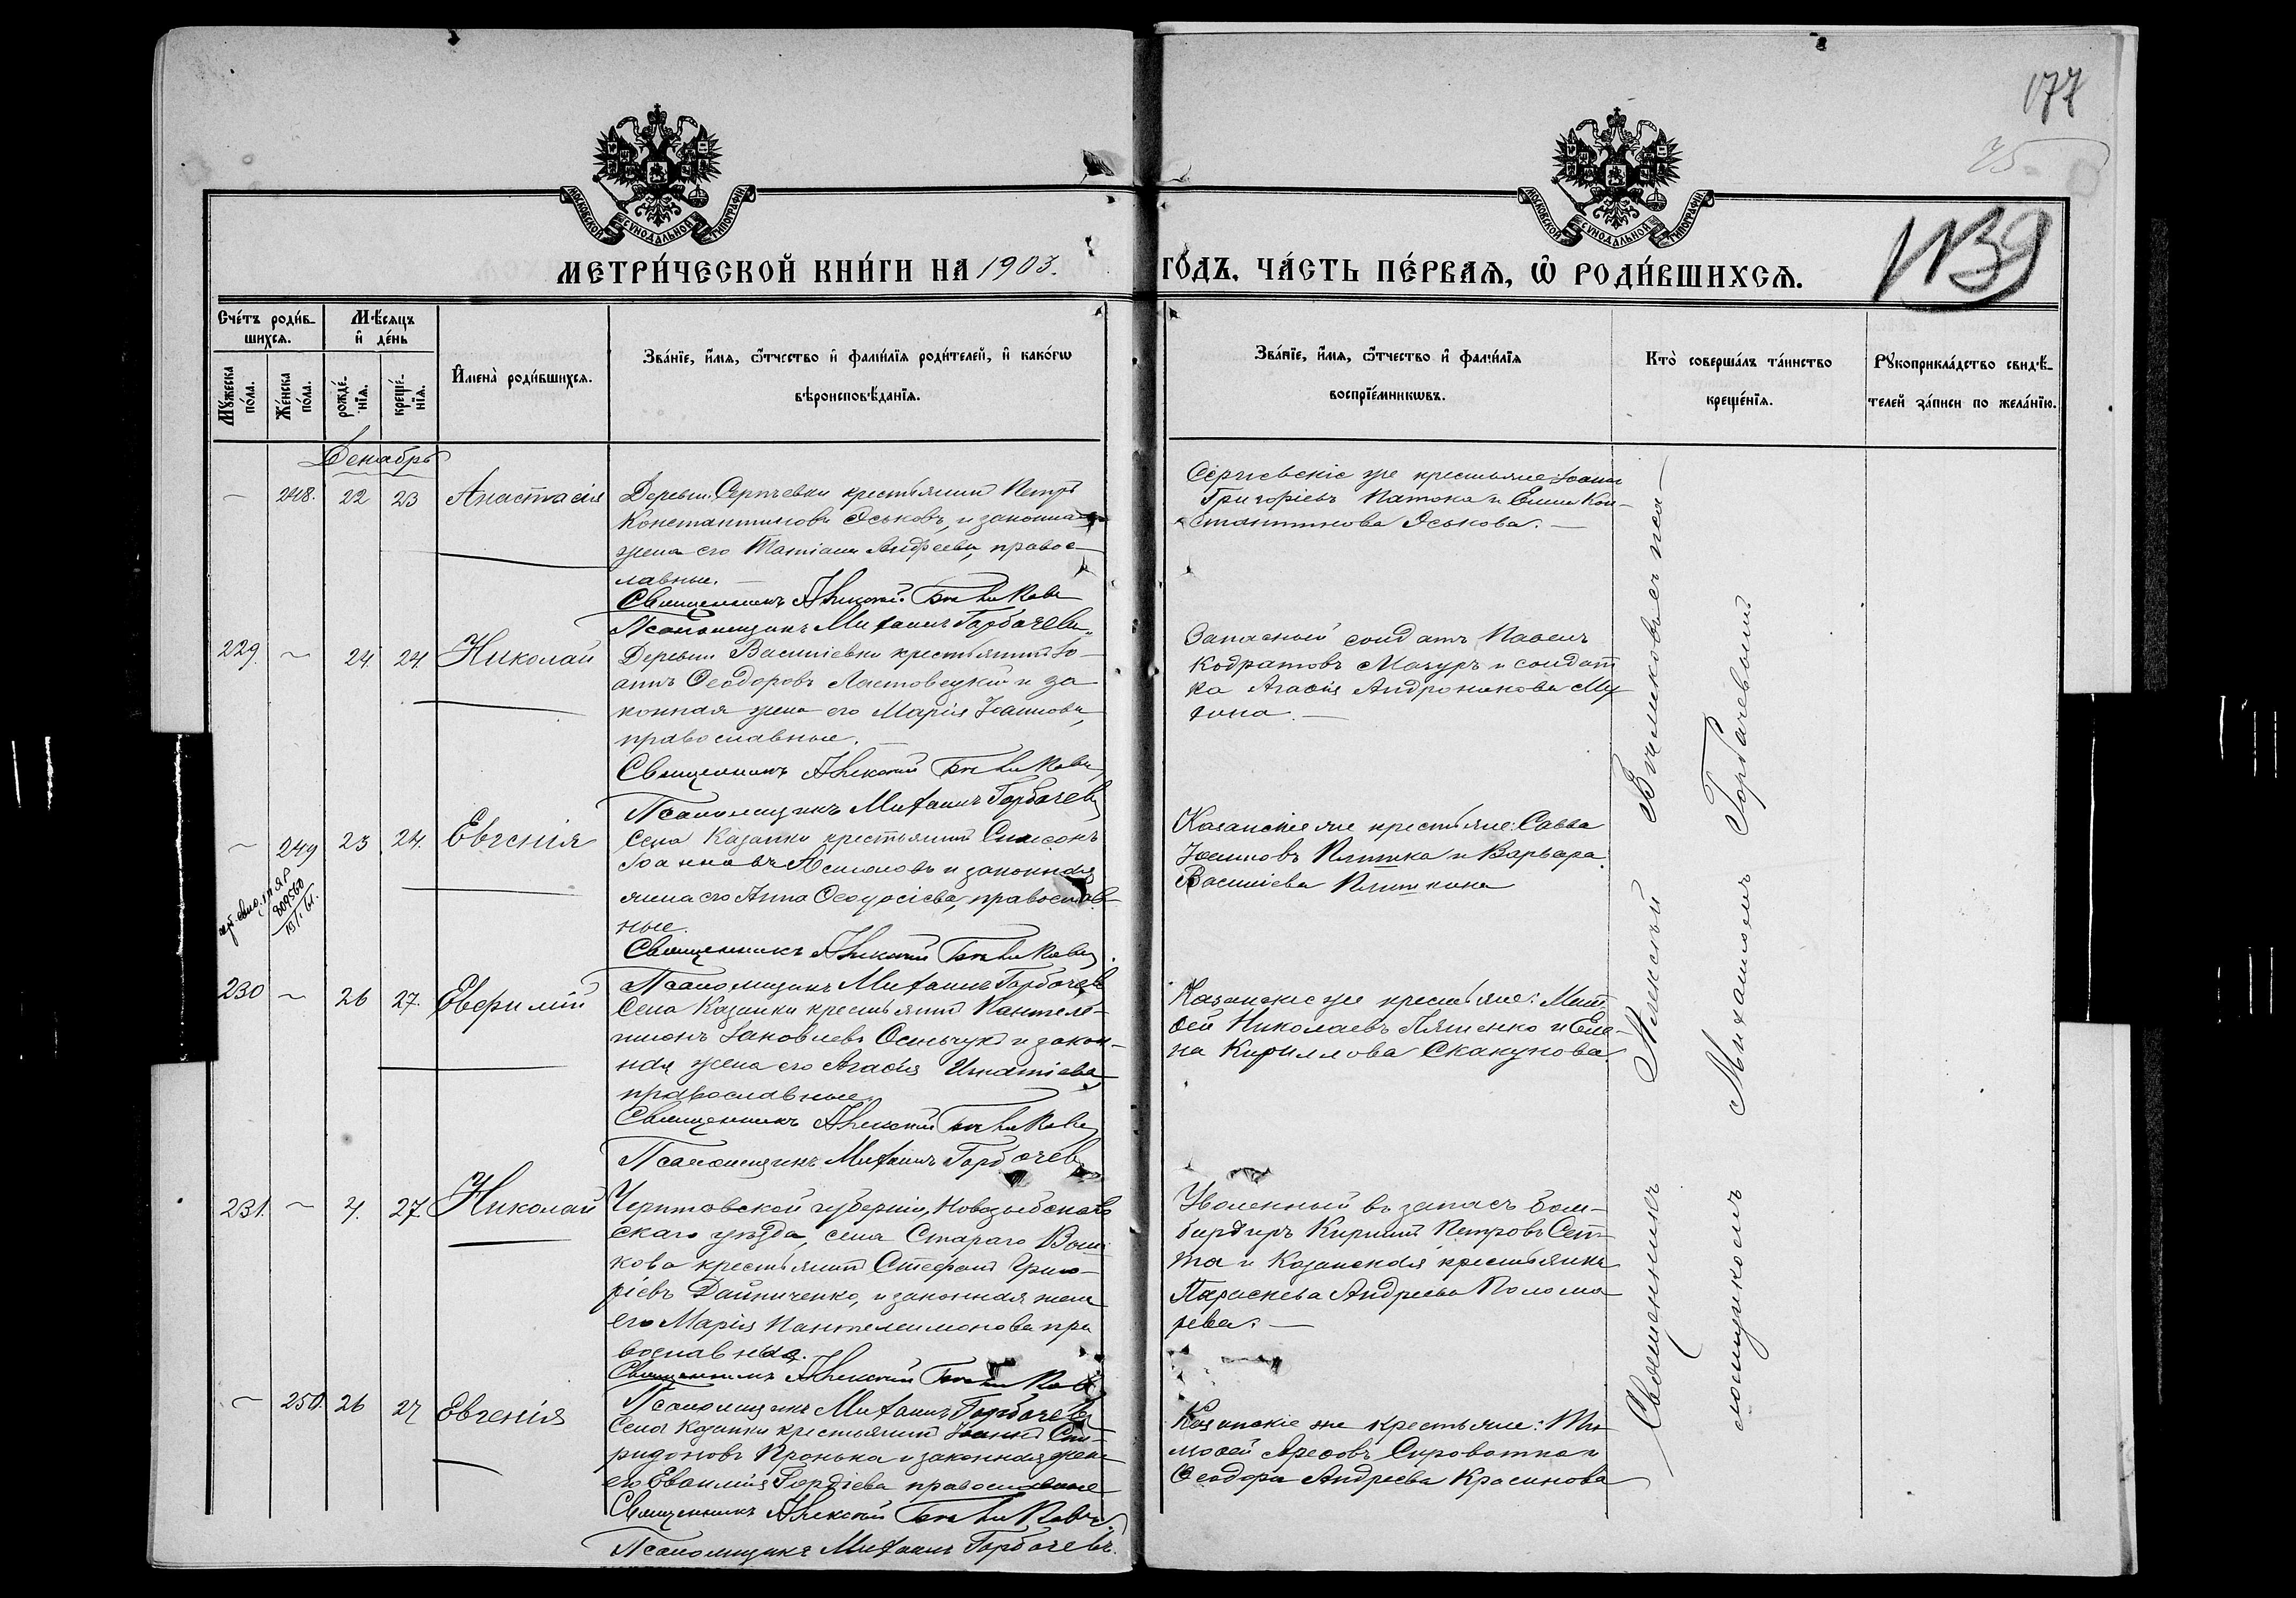 177
75
N39
МОСКОВСКОЙ СУНОДАЛЬНОЙ ТИПОГРАФІИ
МОСКОВСКОЙ СУНОДАЛЬНОЙ ТИПОГРАФІИ
МЕТРИ́ЧЕСКОЙ КНИ́ГИ НА 1903. ГО́ДЪ, ЧА́СТЬ ПЕ́РВАѦ, Ѽ РОДИ́ВШИХСѦ.
Сче́тъ роди́в-
шихсѧ.
Мꙋ́жеска по́ла.
Же́нска по́ла.
Мѣ́сѧцъ
и҆ де́нь
рожде́-нїѧ.
креще́-нїѧ.
И҆мена̀ роди́вшихсѧ.
Зва́нїе, и҆́мѧ, ѻ҆́тчество и҆ фами́лїѧ роди́телей, и҆ како́гѡ
вѣроисповѣ́данїѧ.
Зва́нїе, и҆́мѧ, ѻ҆́тчество и҆ фами́лїѧ
воспрїе́мникѡвъ.
Кто̀ соверша́лъ та́инство
креще́нїѧ.
Рꙋкоприкла́дство свидѣ́-
телей за́писи по жела́нїю.
Декабрь
— 248. 22 23 Анастасія
Деревни Сергѣевки крестьянинъ Петръ
Константиновъ Яськовъ, и законная
жена его Татіана Андреева, правос-
лавные.
Священникъ Алексій
Псаломщикъ Михаилъ Горбачевъ
Сергіевскіе же крестьяне: Іоаннъ
Григорьевъ Патока и Елена Кон-
стантинова Яськова.
229. — 24 24. Николай
Деревни Василіевки крестьянинъ Іо-
аннъ Ѳеодоровъ Ластовецкій и за
конная жена его Марія Іоаннова,
православные.
Священникъ Алексій
Псаломщикъ Михаилъ Горбачевъ
Запасный солдатъ Павелъ
Кодратовъ Мачуръ и солдат
ка Агаѳія Андроникова
— 249 23 24. Евгенія
809560
Села Казанки крестьянинъ Симеонъ
Іоанновъ и законная
жена его Анна Ѳеодосіева, православ-
ные.
Священникъ Алексій
Псаломщикъ Михаилъ Горбачевъ
Казанскіе же крестьяне: Савва
Іоанновъ и Варвара
Василіева
230 — 26 27. Евѳимій
Села Казанки крестьянинъ Пантеле-
имонъ Іаковлевъ Осипчукъ и закон-
ная жена его Агаѳія Игнатіева,
православные.
Священникъ Алексій
Псаломщикъ Михаилъ Горбачевъ
Казанскіе же крестьяне: Мат
ѳей Николаевъ Ляшенко и Еле-
на Кириллова Скакунова
231. — 4. 27 Николай
Черниговской губерніи, Новозыбков
скаго уѣзда, села Стараго
кова крестьянинъ Стефанъ Григо-
ріевъ Дайниченко, и законная жена
его Марія Пантелеимонова пра
вославные.
Священникъ Алексій
Псаломщикъ Михаилъ Горбачевъ
Уволенный въ запасъ бом-
бирдиръ Кириллъ Петровъ
и Казанская крестьянка
Параскева Андреева Полома
рева.
— 250. 26 27 Евгенія
Села Казанки крестьянинъ Іоаннъ Спи-
ридоновъ Пронька и законная жена
его Евѳимія Гордіева православные
Священникъ Алексій
Псаломщикъ Михаилъ Горбачевъ.
Казанскіе же крестьяне: Ти
моѳей Ареѳовъ Сироватка и
Ѳеодора Андреева Красикова
Священникъ Алексій
Михаиломъ Горбачевымъ